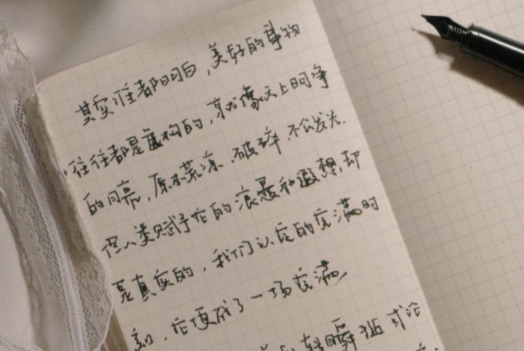 其实谁都明白，美好的事物
往往都是虚构的，就像天上的
的月亮，原本荒凉、破碎、不会发光.
但人类赋予它的浪漫和遐想,却
是真实的，我们认定的完满时
刻，它便成了一场完满
转瞬